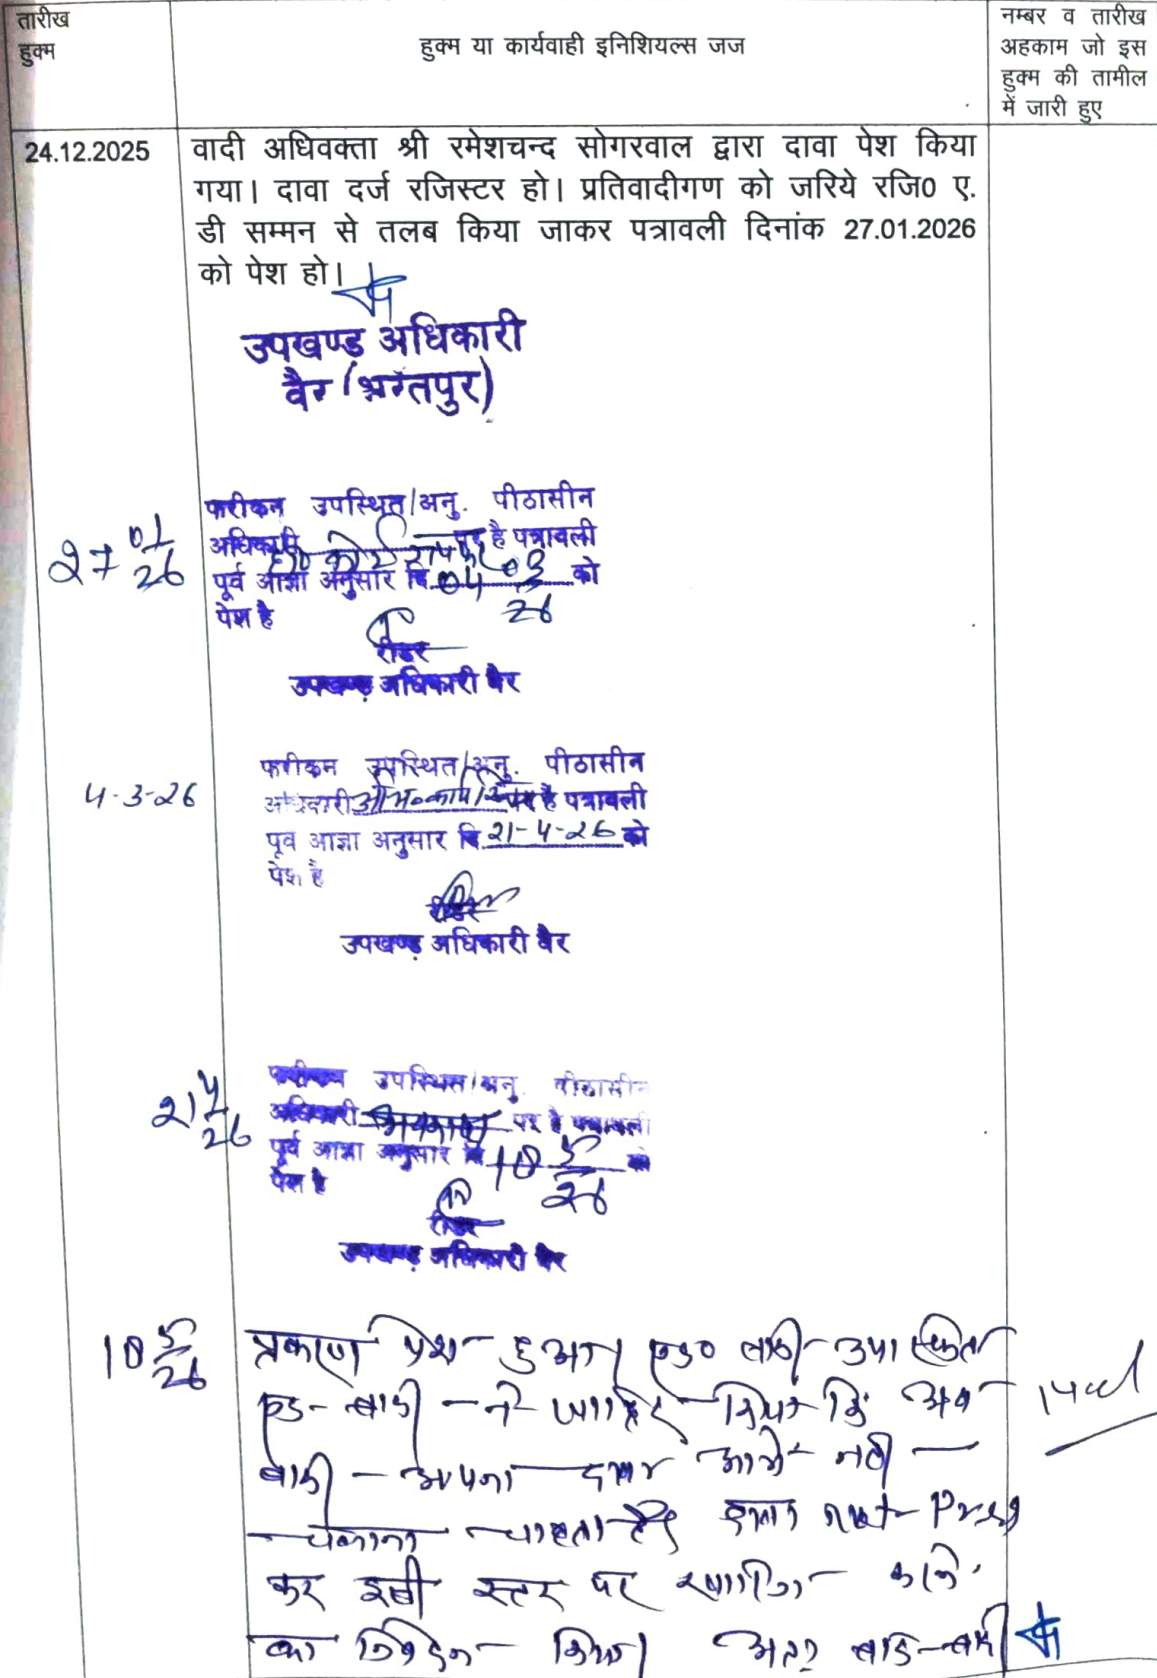 तारीख
हुक्म
हुक्म या कार्यवाही इनिशियल्स जज
नम्बर व तारीख
अहकाम जो इस
हुक्म की तामील
में जारी हुए
24.12.2025
वादी अधिवक्ता श्री रमेशचन्द सोगरवाल द्वारा दावा पेश किया
गया। दावा दर्ज रजिस्टर हो। प्रतिवादीगण को जरिये रजि0 ए.
डी सम्मन से तलब किया जाकर पत्रावली दिनांक 27.01.2026
को पेश हो।
उपखण्ड अधिकारी
वैर (भरतपुर)
27 01/26
फरीकन उपस्थित/अनु. पीठासीन
अधिकारी पर है पत्रावली
पूर्व आज्ञा अनुसार दि. 04 03/26 को
पेश है
रीडर
उपखण्ड अधिकारी वैर
4-3-26
फरीकन उपस्थित/अनु. पीठासीन
अधिकारी पर है पत्रावली
पूर्व आज्ञा अनुसार दि. 21-4-26 को
पेश है
रीडर
उपखण्ड अधिकारी वैर
21 4/26
फरीकन उपस्थित/अनु. पीठासीन
अधिकारी पर है पत्रावली
पूर्व आज्ञा अनुसार दि 10 5/26 को
पेश है
रीडर
उपखण्ड अधिकारी वैर
10 5/26
प्रकरण पेश हुआ। एड0 वादी उपस्थित
एड- वादी ने जाहिर किया कि अब
वादी अपना दावा आगे नहीं
चलाना चाहता है। not Press
कर इसी स्तर पर खारिज करने
का निवेदन किया। अतः वाद वादी